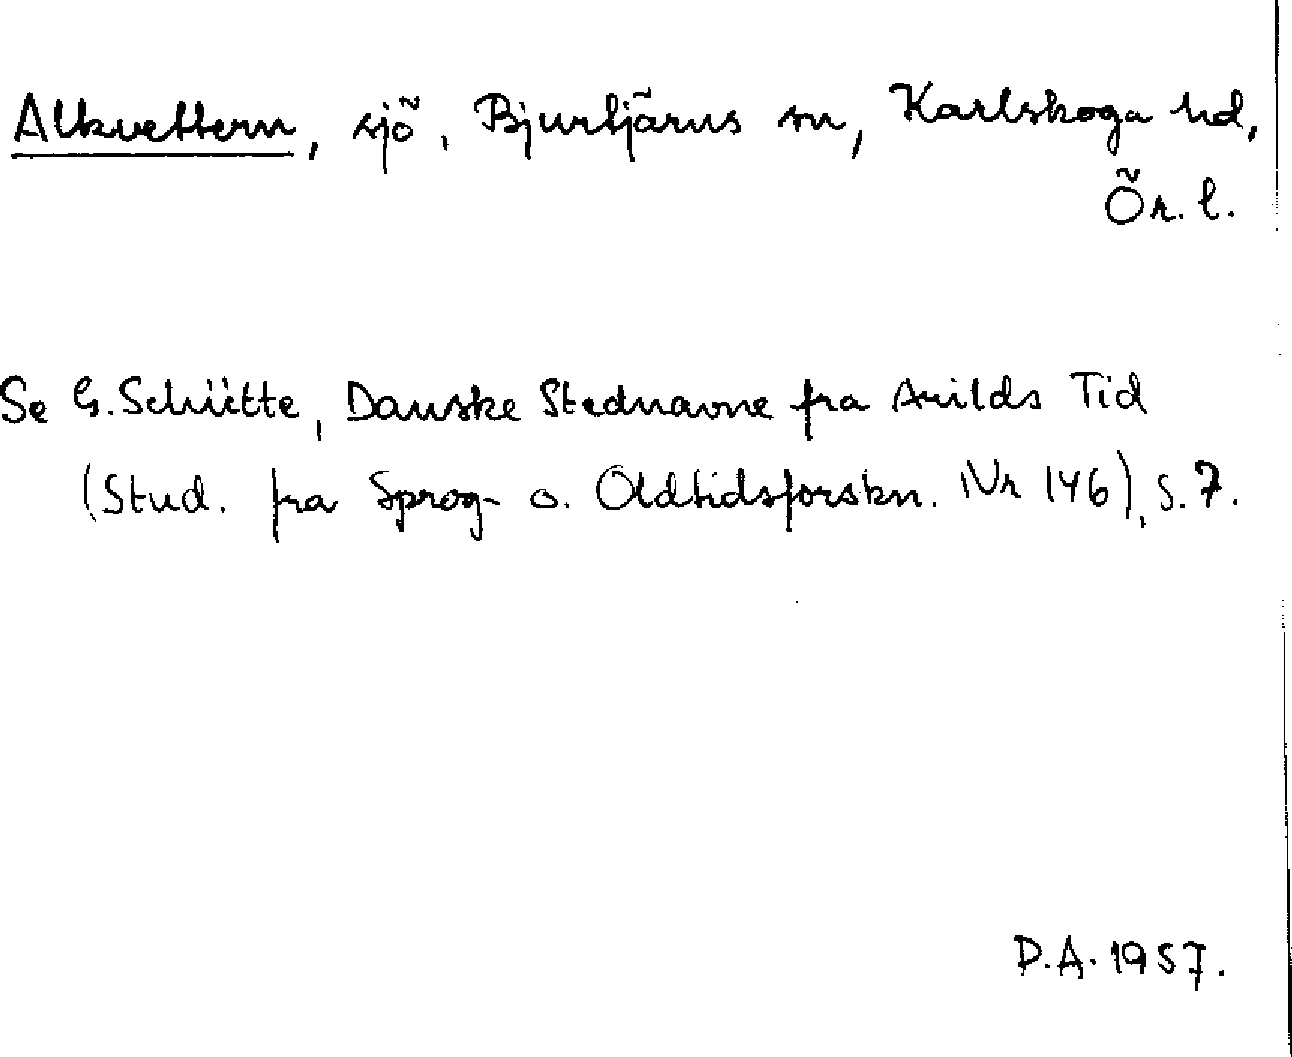 Alkvettern, sjö, Bjurtjärns sn, Karlskoga hd,
Ör. l.
Se G. Schütte, Danske Stednavne fra Arilds Tid
(Stud. fra Sprog- o. Oldtidsforskn. Nr 146), s. 7.
D.A. 1957.